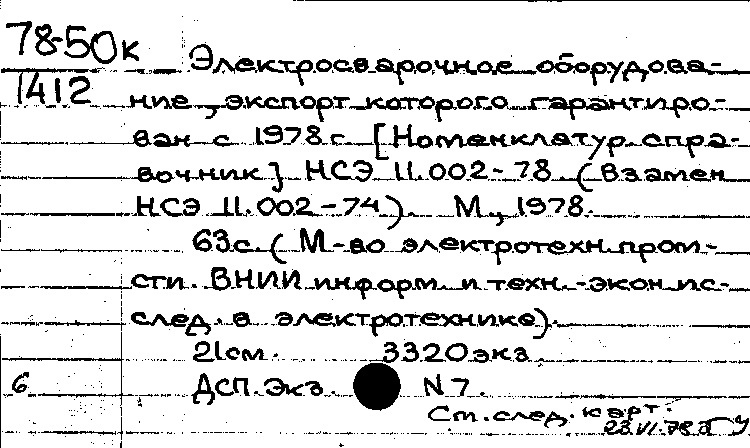 78-50к
1412
Электросварочное оборудова-
ние, экспорт которого гарантиро-
ван с 1978г. [Номенклатур. спра-
вочник] НСЭ 11.002-78. (Взамен
НСЭ 11.002-74). М., 1978.
63с. (М-во электротехн. пром-
сти. ВНИИ информ. и техн.-экон. ис-
след. в электротехнике).
21см. 3320экз.
6 ДСП. Экз. N 7.
См. след. карт.
23.VI.78.